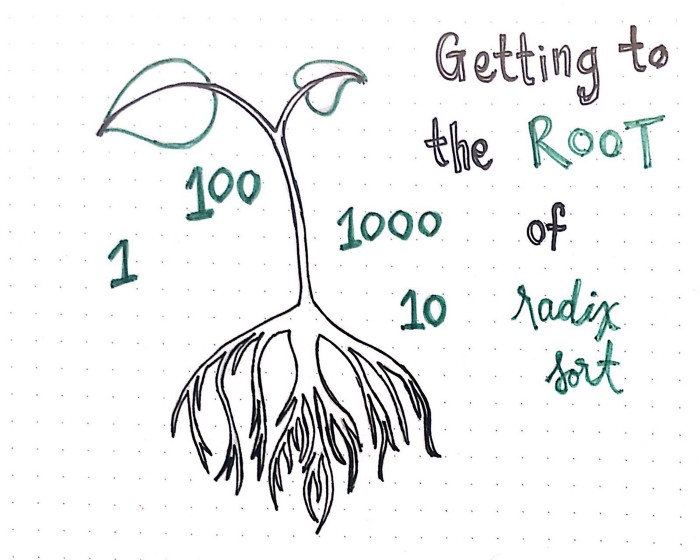 Getting to
the ROOT
of
radix
sort
100
1
1000
10